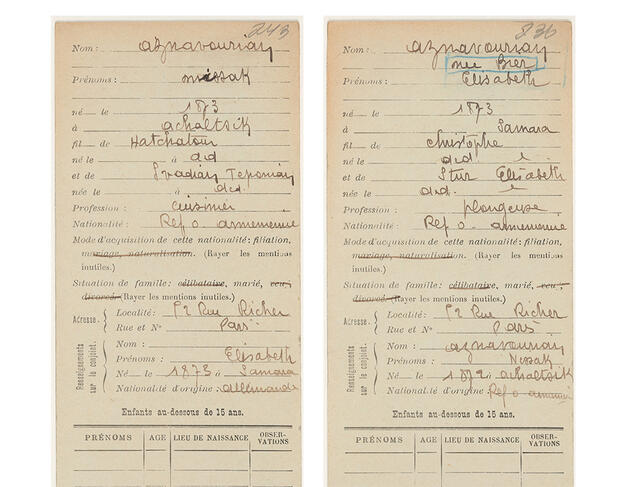 243
Nom: aznavourian
Prénoms: missak
né le 1873
à achaltsik
fil de Hatchatour
né le à d.d
et de Svadian Tepomian
née le à d.d
Profession: cuisinier
Nationalité: Ref o. armenienne
Mode d'acquisition de cette nationalité: filiation,
mariage, naturalisation. (Rayer les mentions
inutiles.)
Situation de famille: célibataire, marié, veuf,
divorcé. (Rayer les mentions inutiles.)
Adresse.
Localité: 52 Rue Richer
Rue et N° Paris
Renseignements sur le conjoint.
Nom:
Prénoms: Elisabeth
Né le 1873 à Samara
Nationalité d'origine: allemande
Enfants au-dessous de 15 ans.
PRÉNOMS AGE LIEU DE NAISSANCE OBSER-
VATIONS
836
Nom: aznavourian
née Bier
Prénoms: Elisabeth
né le 1873
à Samara
fil de christophe
né le d.d. à
et de Stur Elisabeth
née le d.d. à
Profession: plongeuse
Nationalité: Ref o. armenienne
Mode d'acquisition de cette nationalité: filiation,
mariage, naturalisation. (Rayer les mentions
inutiles.)
Situation de famille: célibataire, marié, veuf,
divorcé. (Rayer les mentions inutiles.)
Adresse.
Localité: 52 Rue Richer
Rue et N° Paris
Renseignements sur le conjoint.
Nom: aznavourian
Prénoms: Missak
Né le 1872 à achaltsik
Nationalité d'origine: Ref o armenie
Enfants au-dessous de 15 ans.
PRÉNOMS AGE LIEU DE NAISSANCE OBSER-
VATIONS